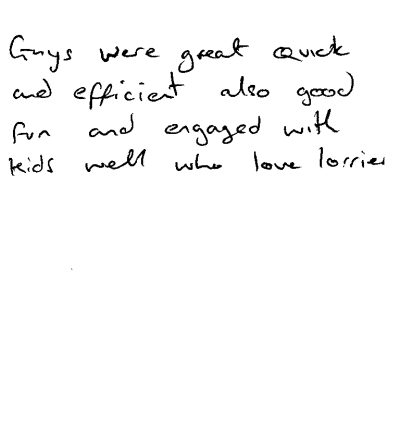 Guys were great quick
and efficient also good
fun and engaged with
kids well who love lorries